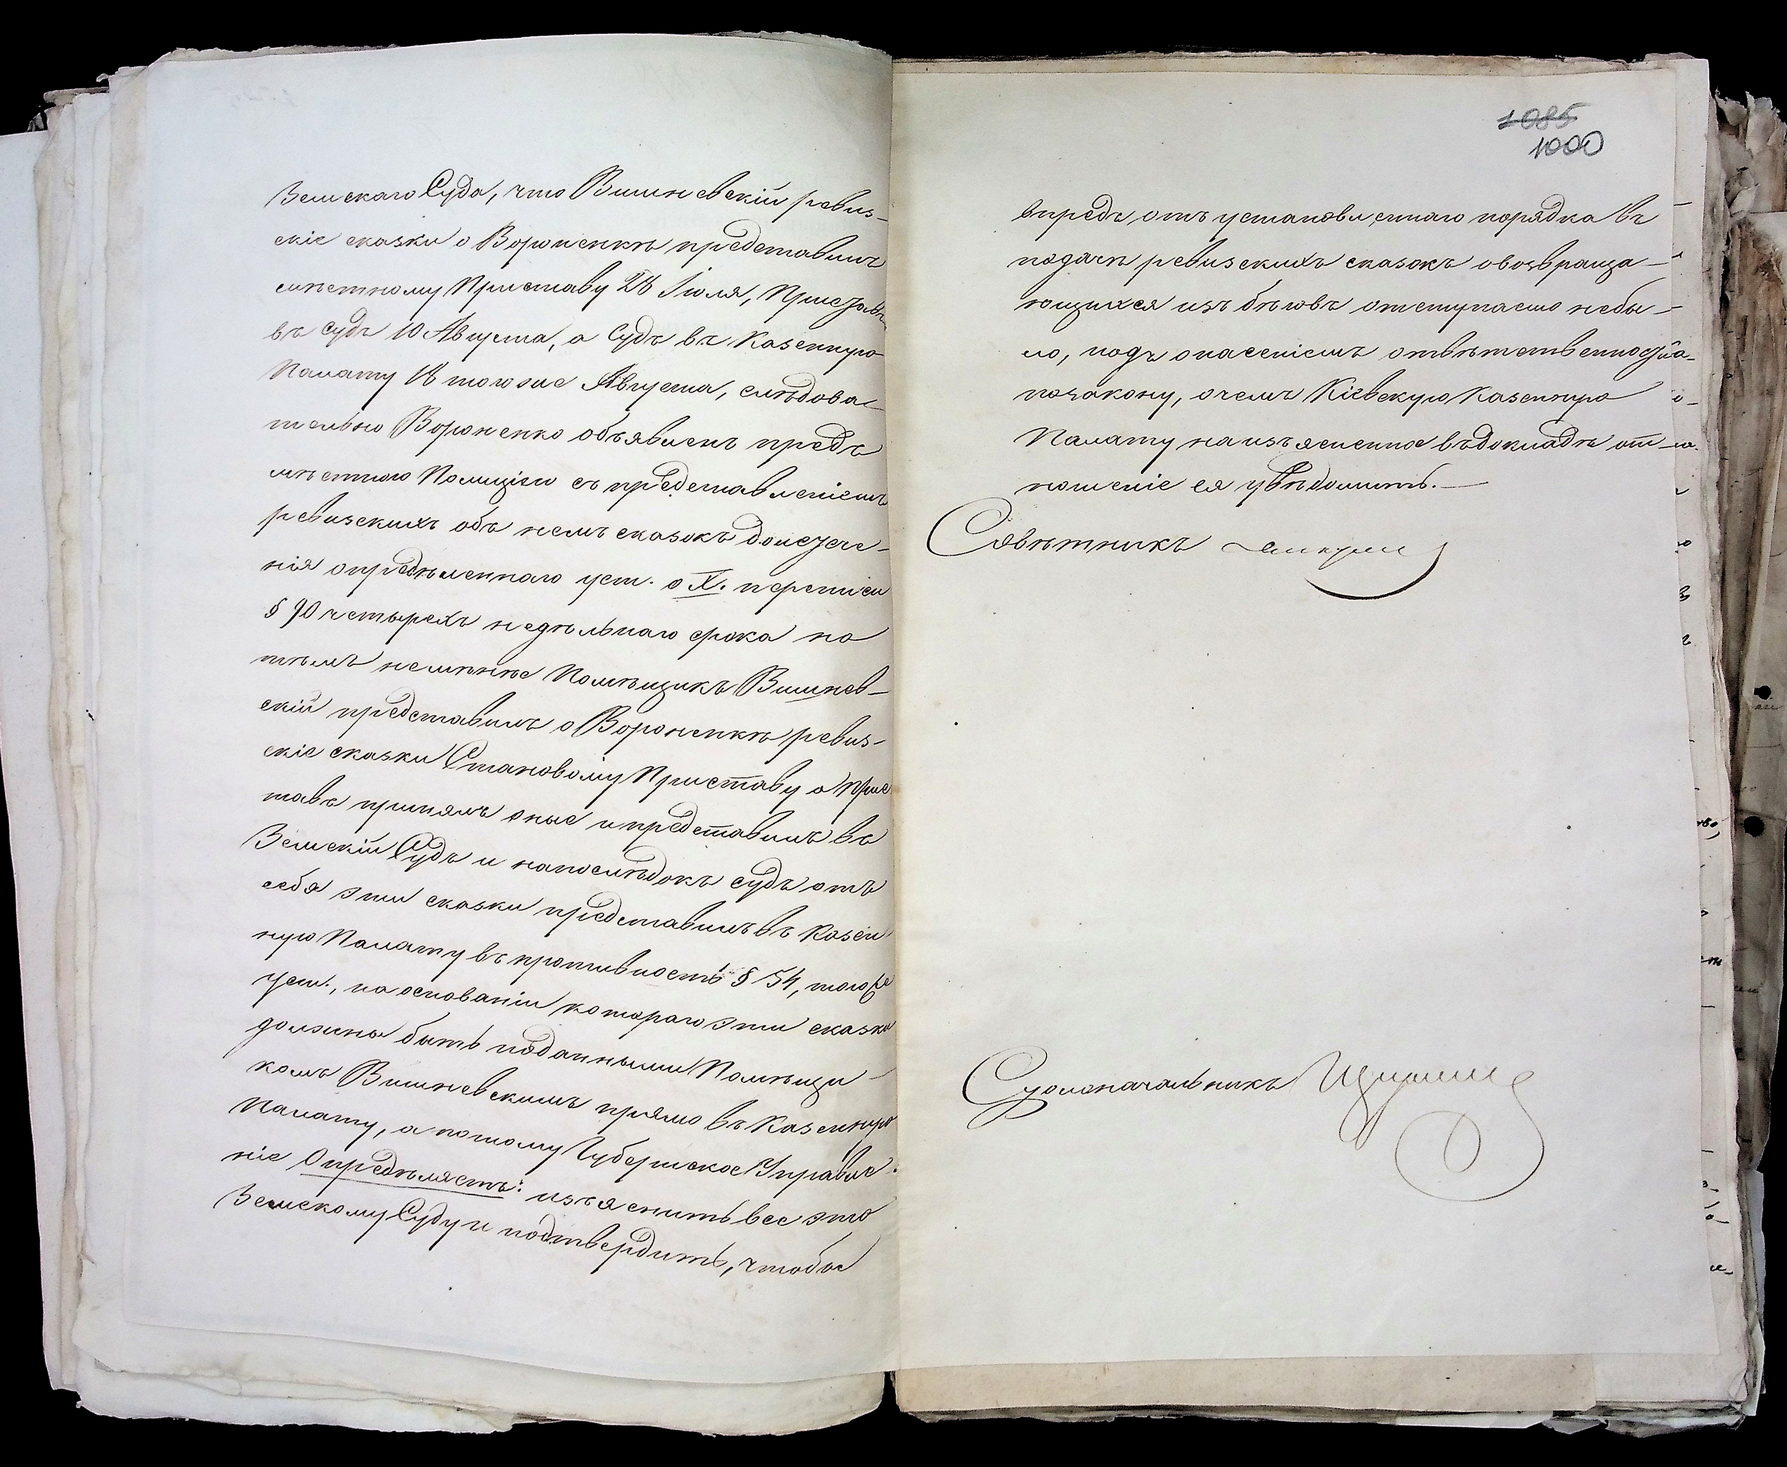 Земскаго Суда, что Вишневскій ревиз-
скіе сказки о Вороненкѣ представилъ
мѣстному Приставу 26 Іюля, Приставъ
въ судъ 10 Августа, а Судъ въ Казенную
Палату 18 того же Августа, слѣдова-
тельно Вороненко объявленъ предъ
мѣстною Полиціею съ представленіемъ
ревизскихъ объ немъ сказокъ до истече-
нія опредѣленнаго уст. о X. переписи
§ 90 четырехъ недѣльнаго срока но
тѣмъ не менѣе Помѣщикъ Вишнев-
скій представилъ о Вороненкѣ ревиз-
скіе сказки Становому Приставу а Прис
тавъ принялъ оные и представилъ въ
Земскій Судъ и напослѣдокъ судъ отъ
себя эти сказки представилъ въ Казен-
ную Палату въ противность § 54, того же
уст., на основаніи котораго эти сказки
должны быть поданными Помѣщи-
комъ Вишневскимъ прямо въ Казенную
Палату, а потому Губернское Правле-
ніе Опредѣляетъ: изъяснить все это
Земскому Суду и подтвердить, чтобы
1085
1000
впредь отъ установленнаго порядка въ
подачѣ ревизскихъ сказокъ о возвраща-
ющихся изъ бѣговъ отступаемо небы-
ло, подъ опасеніемъ отвѣтственности
по закону, о чемъ Кіевскую Казенную
Палату на изъясненное въ докладѣ от-
ношеніе ея увѣдомить.—
Совѣтникъ
Столоначальникъ